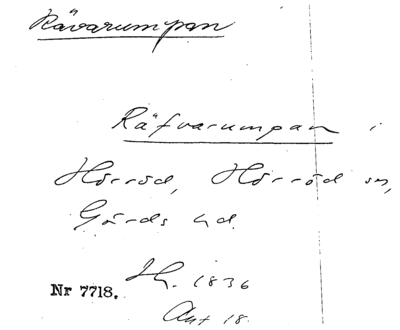 Rävarumpan
Räfvarumpan i
Hörröd, Hörröd sn,
Gärds hd.
Nr 7718. H. 1836
Akt 18.